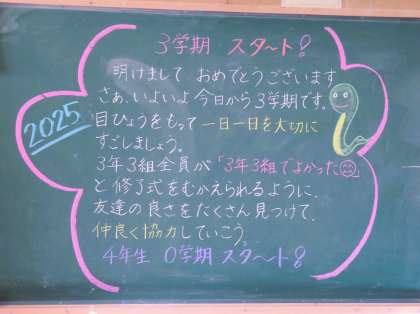 3学期 スタ〜ト!
2025
明けまして おめでとうございます
さぁ、いよいよ今日から3学期です。
目ひょうをもって一日一日を大切に
すごしましょう。
3年3組全員が「3年3組でよかった☺」
と修了式をむかえられるように、
友達の良さをたくさん見つけて、
仲良く協力していこう。
4年生 0学期 スタ〜ト!